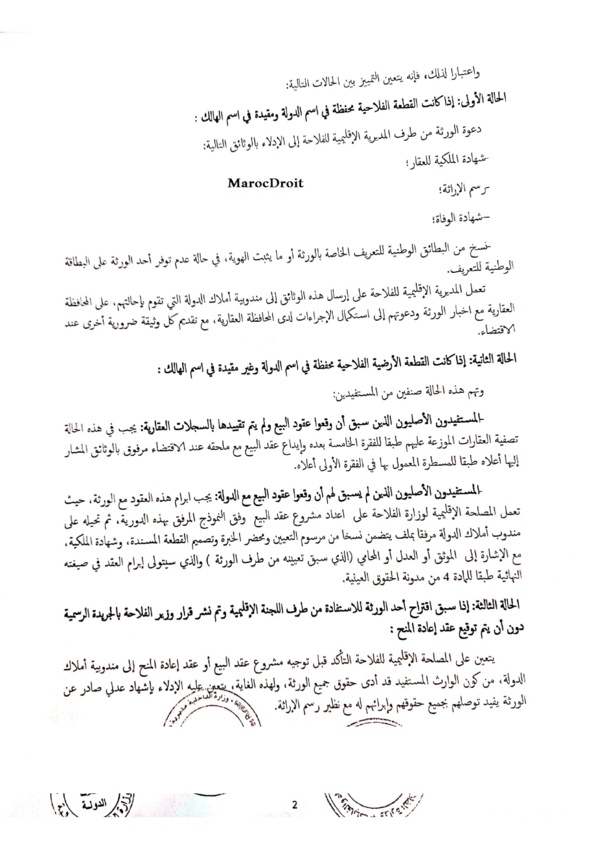 واعتبارا لذلك، فإنه يتعين التمييز بين الحالات التالية:
الحالة الأولى: إذا كانت القطعة الفلاحية محفظة في اسم الدولة ومقيدة في اسم الهالك :
دعوة الورثة من طرف المديرية الإقليمية للفلاحة إلى الإدلاء بالوثائق التالية:
-شهادة الملكية للعقار؛
MarocDroit
-رسم الإراثة؛
-شهادة الوفاة؛
-نسخ من البطائق الوطنية للتعريف الخاصة بالورثة أو ما يثبت الهوية، في حالة عدم توفر أحد الورثة على البطاقة
الوطنية للتعريف.
تعمل المديرية الإقليمية للفلاحة على إرسال هذه الوثائق إلى مندوبية أملاك الدولة التي تقوم بإحالتهم، على المحافظة
العقارية مع اخبار الورثة ودعوتهم إلى استكمال الإجراءات لدى المحافظة العقارية، مع تقديم كل وثيقة ضرورية أخرى عند
الاقتضاء.
الحالة الثانية: إذا كانت القطعة الأرضية الفلاحية محفظة في اسم الدولة وغير مقيدة في اسم الهالك :
وتهم هذه الحالة صنفين من المستفيدين:
-المستفيدون الأصليون الذين سبق أن وقعوا عقود البيع ولم يتم تقييدها بالسجلات العقارية: يجب في هذه الحالة
تصفية العقارات الموزعة عليهم طبقا للفقرة الخامسة بعده وإيداع عقد البيع مع ملحقه عند الاقتضاء مرفوق بالوثائق المشار
إليها أعلاه طبقا للمسطرة المعمول بها في الفقرة الأولى أعلاه.
-المستفيدون الأصليون الذين لم يسبق لهم أن وقعوا عقود البيع مع الدولة: يجب ابرام هذه العقود مع الورثة، حيث
تعمل المصلحة الإقليمية لوزارة الفلاحة على اعداد مشروع عقد البيع وفق النموذج المرفق بهذه الدورية. ثم تحيله على
مندوب أملاك الدولة مرفقا بملف يتضمن نسخا من مرسوم التعيين ومحضر الخبرة وتصميم القطعة المسندة، وشهادة الملكية،
مع الإشارة إلى الموثق أو العدل أو المحامي (الذي سبق تعيينه من طرف الورثة ) والذي سيتولى إبرام العقد في صيغته
النهائية طبقا للمادة 4 من مدونة الحقوق العينية.
الحالة الثالثة: إذا سبق اقتراح أحد الورثة للاستفادة من طرف اللجنة الإقليمية وتم نشر قرار وزير الفلاحة بالجريدة الرسمية
دون أن يتم توقيع عقد إعادة المنح :
يتعين على المصلحة الإقليمية للفلاحة التأكد قبل توجيه مشروع عقد البيع أو عقد إعادة المنح إلى مندوبية أملاك
الدولة، من كون الوارث المستفيد قد أدى حقوق جميع الورثة، ولهذه الغاية، يتعين عليه الإدلاء بإشهاد عدلي صادر عن
الورثة يفيد توصلهم بجميع حقوقهم وإبرائهم له مع نظير رسم الإراثة.
الدولة
2